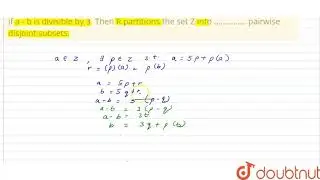 if a - b is divisible by 3. Then R partitions the set Z into ............... pairwise
disjoint subsets.
a ∈ Z , ∃ p ∈ Z s.t. a = 5p + p(a)
r = (p)(a) = p(b)
a = 5p + r
b = 5q + r
a-b = 5 (p-q)
a-b = 3 (p-q)
a-b = 3t
b = 3q + p(b)
doubtnut